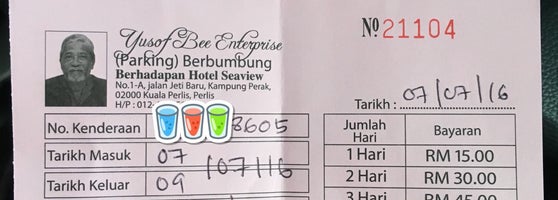 Yusof Bee Enterprise
(Parking) Berbumbung
Berhadapan Hotel Seaview
No.1-A, jalan Jeti Baru, Kampung Perak,
02000 Kuala Perlis, Perlis
H/P : 012-
No 21104
Tarikh : 07/07/16
No. Kenderaan 8605
Tarikh Masuk 07
/07/16
Tarikh Keluar 09
Jumlah Hari Bayaran
1 Hari RM 15.00
2 Hari RM 30.00
3 Hari RM 45.00